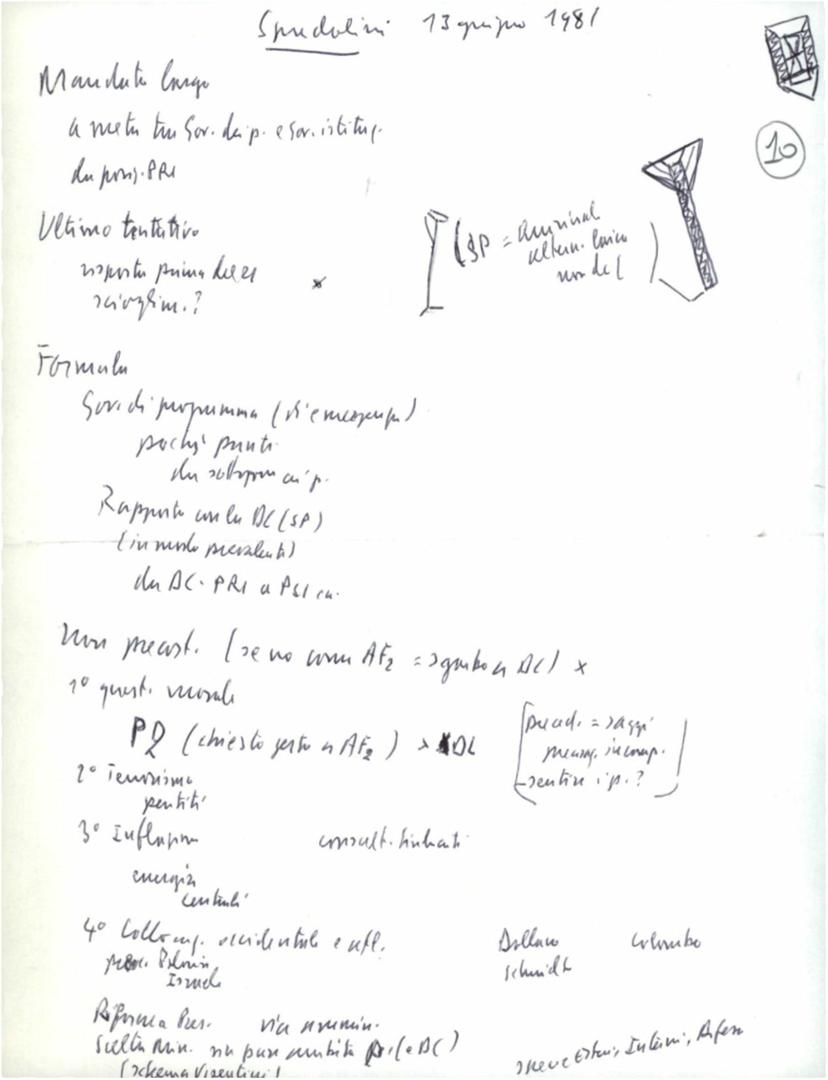 Spadolini 13 giugno 1981
10
Mandato largo
a metà tra Gov. dei p. e Gov. istituz.
da posiz. PRI
Ultimo tentativo
risposta prima del 21
scioglim.?
(SP = 
altern. laica
non di
Formula
Gov. di programma (di emergenza)
pochi punti
da sottoporre ai p.
Rapporto con la DC (SP)
(in modo prevalente)
da DC - PRI a PSI ecc.
Non precost. (se no come AF2 = sgambo a DC) x
1° quest. morale
P2 (chiesto gesto a AF2) x DC
= saggi
incomp.
sentire i p.?
2° Terrorismo
pentiti
3° Inflazione consult.
energia
centrali
4° Colloc. occidentale e atl.
Polonia
Israele
Schmidt
Colombo
Riforma Pres. via ammin.
Scelta Min. DC)
(schema Visentini)
Esteri, Interni, Difesa